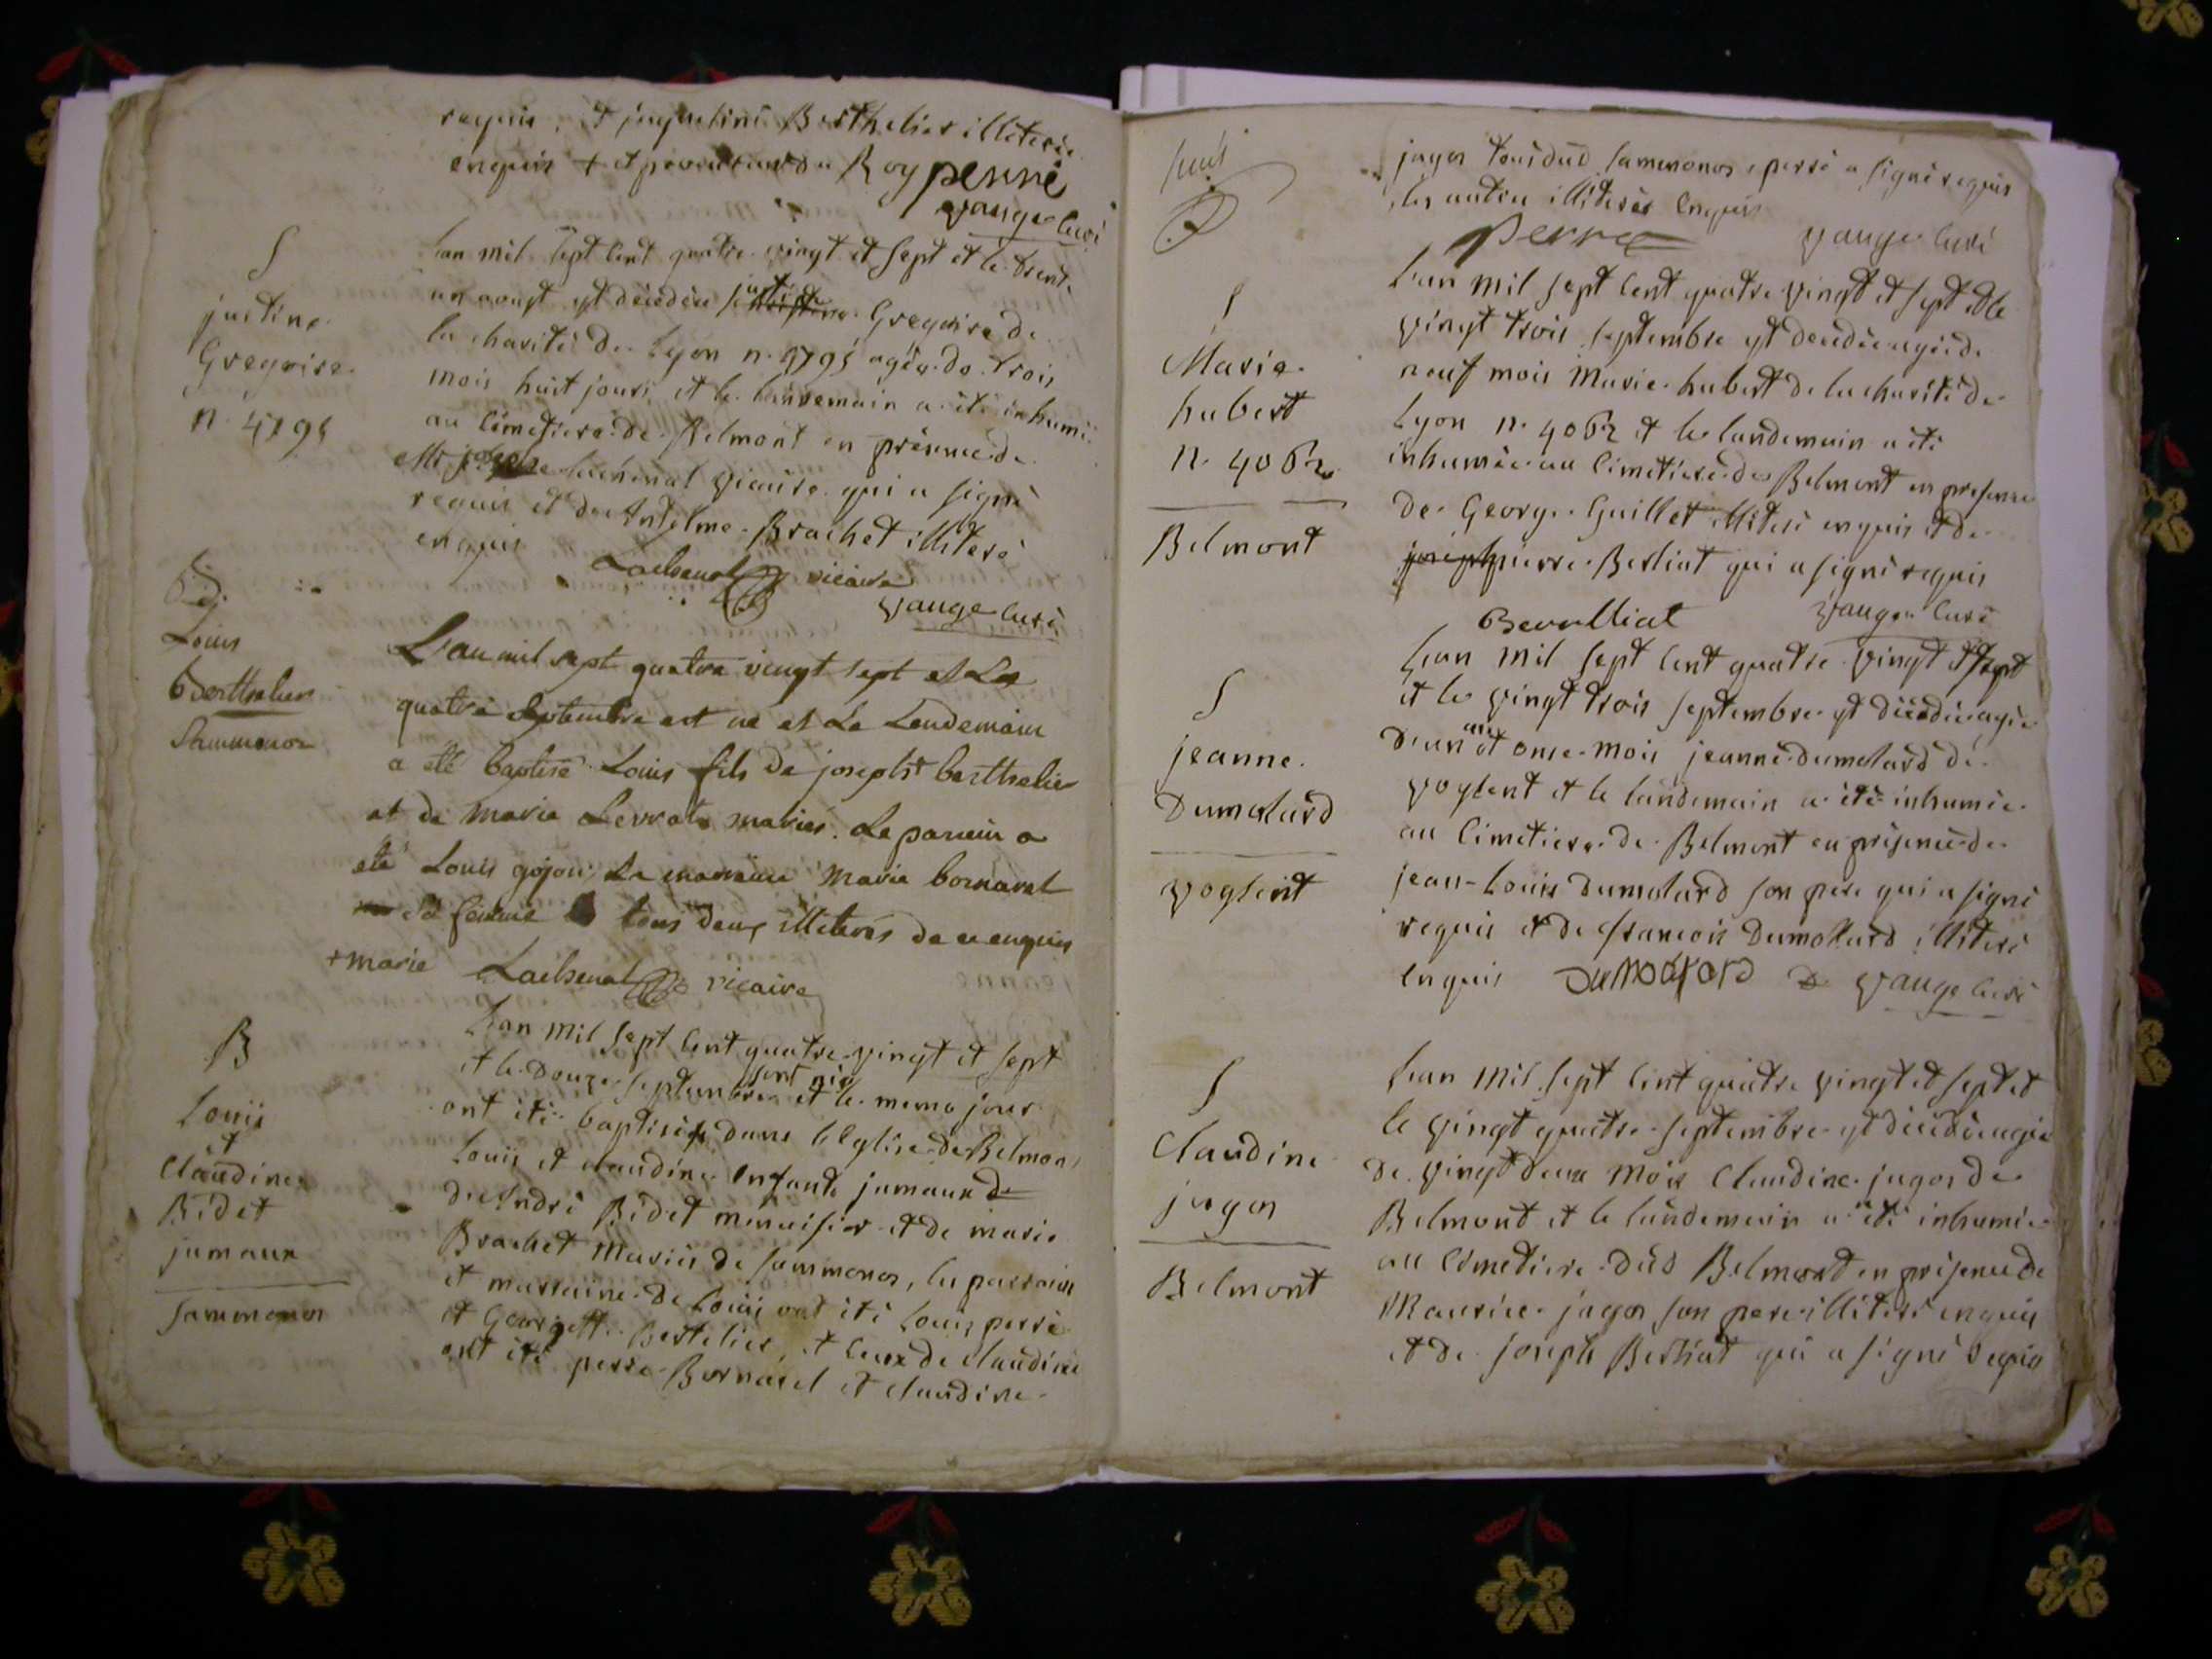 requis, et jaquelini Berthelier illiteré
enquis + et procureur du Roy perré
vauge curé
S
justine
Gregoire
n. 4795
Lan mil sept cent quatre vingt et sept et le trente
un aoust est décédée justine Gregoire de
la charité de Lyon n. 4795 agée de trois
mois huit jours, et le landemain a été inhumée
au cimetiere de Belmont en présence de
Mr joseph Lachenal vicaire qui a signé
requis et de Antelme Brachet illiteré
enquis
Lachenal vicaire
vauge curé
B
Louis
Berthelier
Sammonor
L'an mil sept quatre vingt sept et Le
quatre Septembre est né et Le Lendemain
a été baptisé Louis fils de joseph + berthelier
et de marie Levrat mariés. Le parrein a
été Louis gojon, La marraine Marie bornarel
sa femme tous deux illiterés de ce enquis
+ marie Lachenal vicaire
B
Louis
et
Claudine
Bidet
jumaux
Sammonor
Lan mil sept cent quatre vingt et sept
et le douze septembre sont nés et le meme jour
ont été baptisés dans l'Eglise de Belmon
Louis et claudine Enfants jumaux de
d'André Bidet menuisier et de marie
Brachet Mariés de sammonor, les parrain
et marraine de Louis ont été Louis perré
et Georgette Bertelier, et ceux de claudine
ont été perre Bornarel et claudine
jagor tous dud sammonor, perré a signé requis
les autres illiterés Enquis
perré vauge curé
S
Marie
hubert
n. 4062
Belmont
Lan mil sept cent quatre vingt et sept et le
vingt trois septembre est decedée agée de
neuf mois Marie hubert de la charité de
Lyon n. 4062 et le landemain a été
inhumée au Cimetiere de Belmont en presence
de George Guillet illiteré enquis et de
joseph pierre Berliat qui a signé requis
Beurlliat vauge curé
S
jeanne
Dumolard
voglent
Lan mil sept cent quatre vingt et sept
et le vingt trois septembre est décédée agée
d'un an et onse mois jeanne dumolard de
voglent et le landemain a été inhumée
au Cimetiere de Belmont en présence de
jean-Louis Dumolard son pere qui a signé
requis et de françois Dumollard illiteré
enquis DuMolard vauge curé
S
Claudine
jagor
Belmont
Lan mil sept cent quatre vingt et sept et
le vingt quatre septembre est décédée agée
de vingt deux mois Claudine jagor de
Belmont et le landemain a été inhumée
au cimetiere dud Belmont en présence de
Maurice jagor son pere illiteré enquis
et de joseph Berliat qui a signé requis